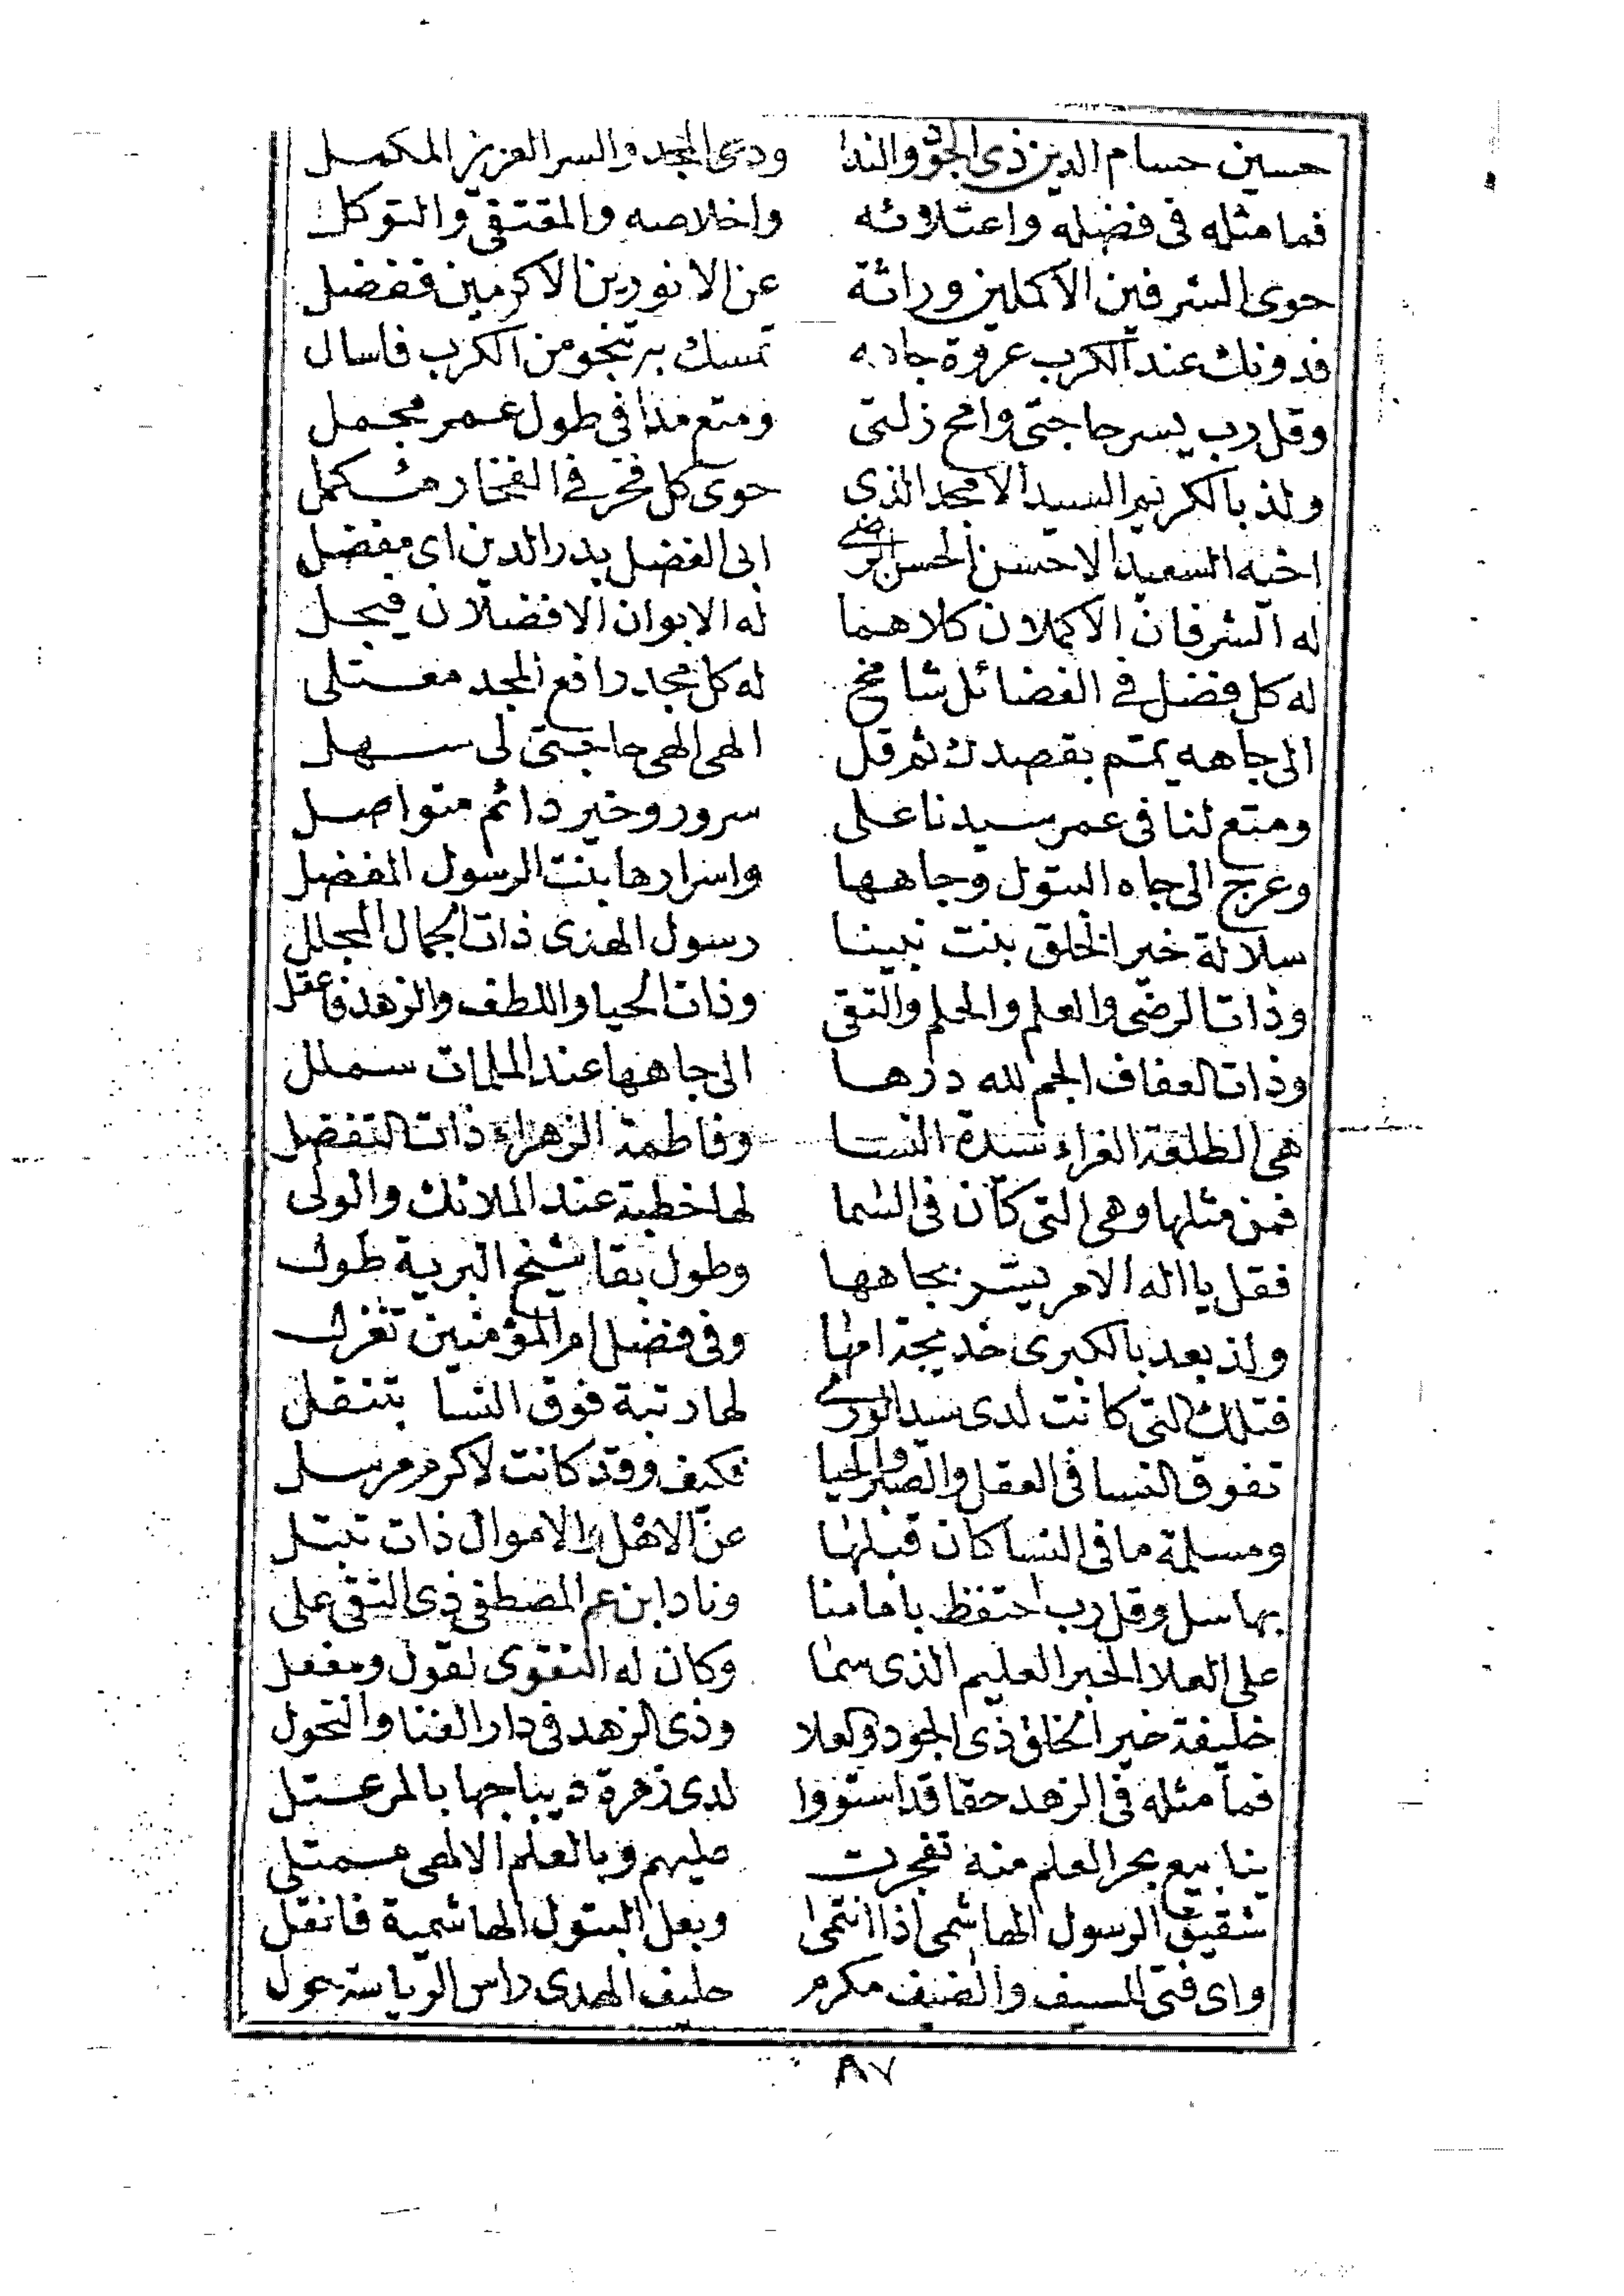 حسين حسام الدين ذى الجود والندا ودى المجد والسر العزيز المكمل
فما مثله فى فضله واعتلائه واخلاصه والمقتفى والتوكل
حوى الشرفين الاكملين وراثة عن الانورين الاكرمين ففضل
فدونك عند الكرب عروة جاهه تمسك به تنجو من الكرب فاسال
وقل رب يسر حاجتى وامح زلتى ومتع مدا فى طول عمر مجمل
ولذ بالكريم السيد الامجد الذى حوى كل فخر فى الفخار مكمل
اخيه السعيد الاحسن الحسن الرضى ابى الفضل بدر الدين اى مفضل
له الشرفان الاكملان كلاهما له الابوان الافضلان فبجل
له كل فضل فى الفضائل شامخ له كل مجد رافع المجد معتلى
الى جاهه يمم بقصدك ثم قل الهى الهى حاجتى لى سهل
ومتع لنا فى عمر سيدنا على سرور وخير دائم متواصل
وعرج الى جاه البتول وجاهها واسرارها بنت الرسول المفضل
سلالة خير الخلق بنت نبينا رسول الهدى ذات الجمال المجلل
وذات الرضى والعلم والحلم والتقى وذات الحيا واللطف والزهد
وذات العفاف الجم لله درها الى جاهها عند الملمات
هى الطلعة الغراء سيدة النسا وفاطمة الزهراء ذات التفضل
فمن مثلها وهى التى كان فى السما لها خطبة عند الملائك والولى
فقل يا اله الامر يسر بجاهها وطول بقا شيخ البرية طول
ولذ بعد بالكبرى خديجة امها وفى فضل ام المؤمنين تغزل
فتلك التى كانت لدى سيد الورى لها رتبة فوق النسا بتنقل
تفوق النسا فى العقل والصبر والحيا فكيف وقد كانت لاكرم مرسل
ومسلمة ما فى النسا كان قبلها عن الاهل والاموال ذات تبتل
بها سل وقل رب احتفظ بامامنا وناد ابن عم المصطفى ذى التقى على
على العلا الحبر العليم الذى سما وكان له التقوى لقول ومفعل
خليفة خير الخلق ذى الجود والعلا وذى الزهد فى دار الفنا والتحول
فما مثله فى الزهد حقا قد استووا لدى زهرة ديباجها
ينابيع بحر العلم منه تفجرت عليهم وبالعلم الالهى ممتلى
شقيق الرسول الهاشمى اذا انتمى وبعل البتول الهاشمية فانقل
واى فتى للسيف والضيف مكرم حليف الهدى راس الرياسة
٨٧